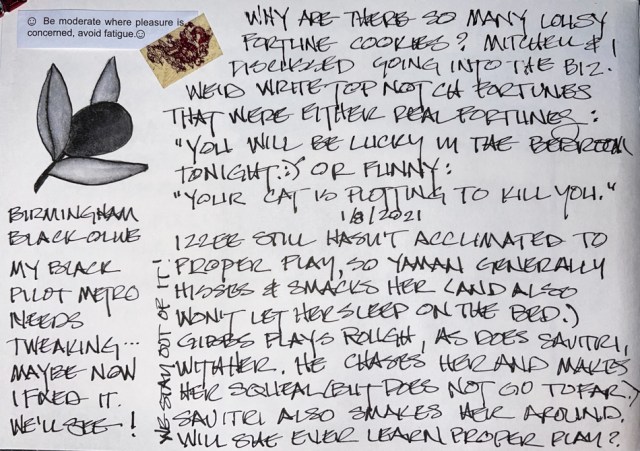 ☺ Be moderate where pleasure is
concerned, avoid fatigue.☺
WHY ARE THERE SO MANY LOUSY
FORTUNE COOKIES? MITCHELL & I
DISCUSSED GOING INTO THE BIZ.
WE'D WRITE TOP NOTCH FORTUNES
THAT WERE EITHER REAL FORTUNES:
"YOU WILL BE LUCKY IN THE BEDROOM
TONIGHT:)" OR FUNNY:
"YOUR CAT IS PLOTTING TO KILL YOU."
1/8/2021
BIRMINGHAM
BLACK OLIVE
MY BLACK
PILOT METRO
NEEDS
TWEAKING...
MAYBE NOW
I FIXED IT.
WE'LL SEE!
IZZEE STILL HASN'T ACCLIMATED TO
PROPER PLAY, SO YAMAN GENERALLY
HISSES & SMACKS HER (AND ALSO
WON'T LET HER SLEEP ON THE BED.)
GIBBS PLAYS ROUGH, AS DOES SAVITRI,
WITH HER. HE CHASES HER AND MAKES
HER SQUEAL (BUT DOES NOT GO TO FAR.)
SAVITRI ALSO SMAKES HER AROUND.
WILL SHE EVER LEARN PROPER PLAY?
WE STAY OUT OF IT!